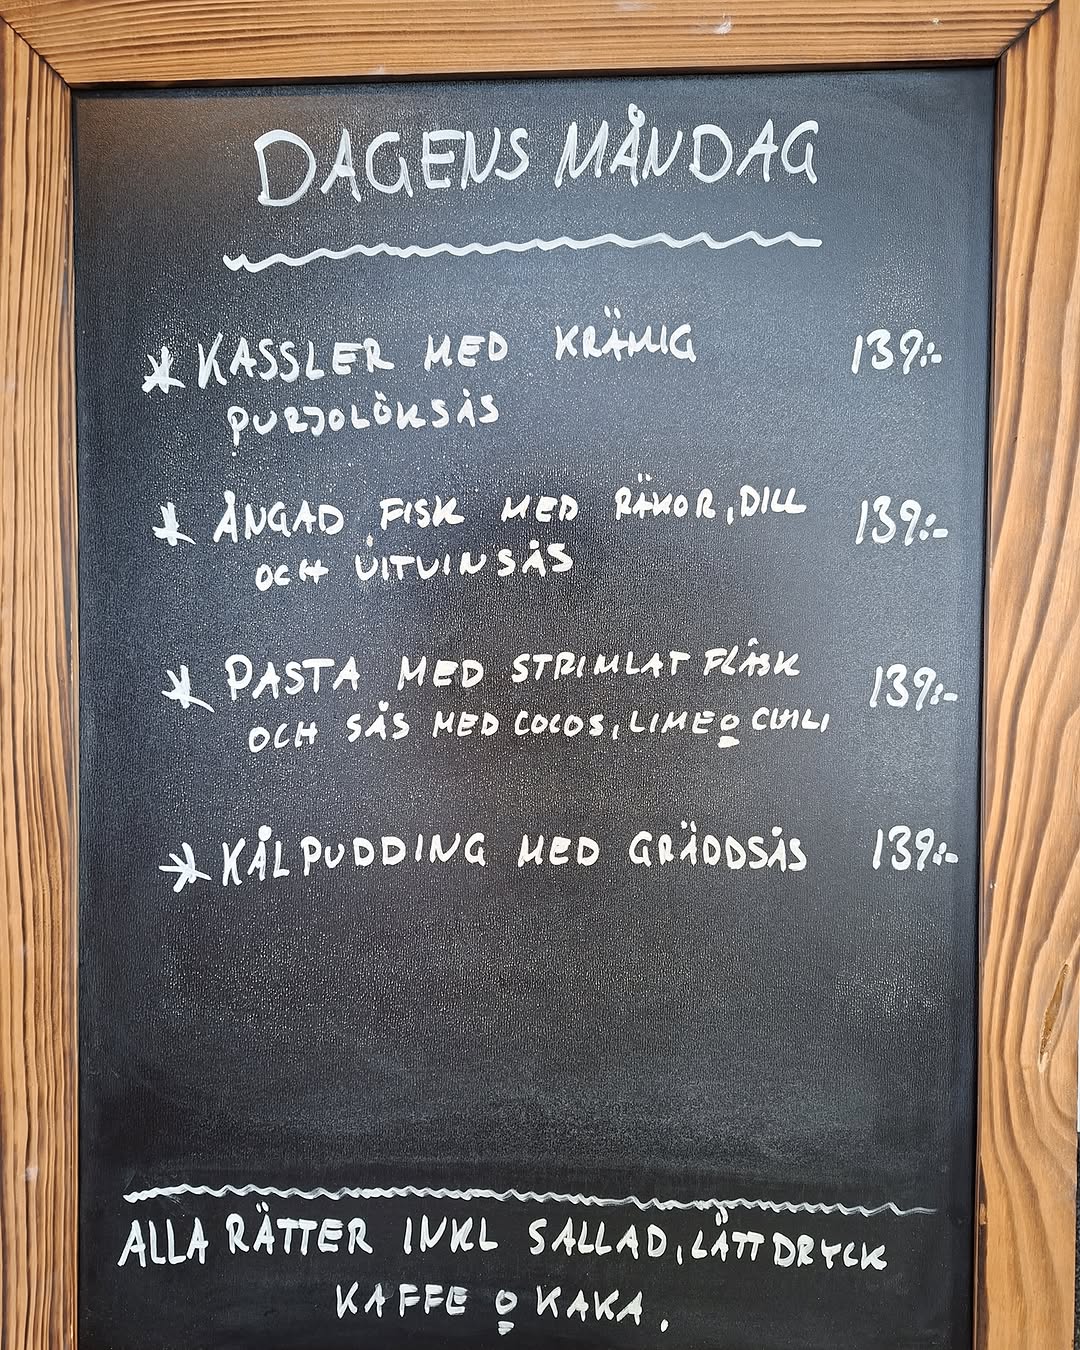 DAGENS MÅNDAG
* KASSLER MED KRÄMIG 139:-
PURJOLÖKSÅS
* ÅNGAD FISK MED RÄKOR, DILL 139:-
OCH VITVINSÅS
* PASTA MED STRIMLAT FLÄSK 139:-
OCH SÅS MED COCOS, LIME O CHILI
* KÅLPUDDING MED GRÄDDSÅS 139:-
ALLA RÄTTER INKL SALLAD, LÄTTDRYCK
KAFFE O KAKA.